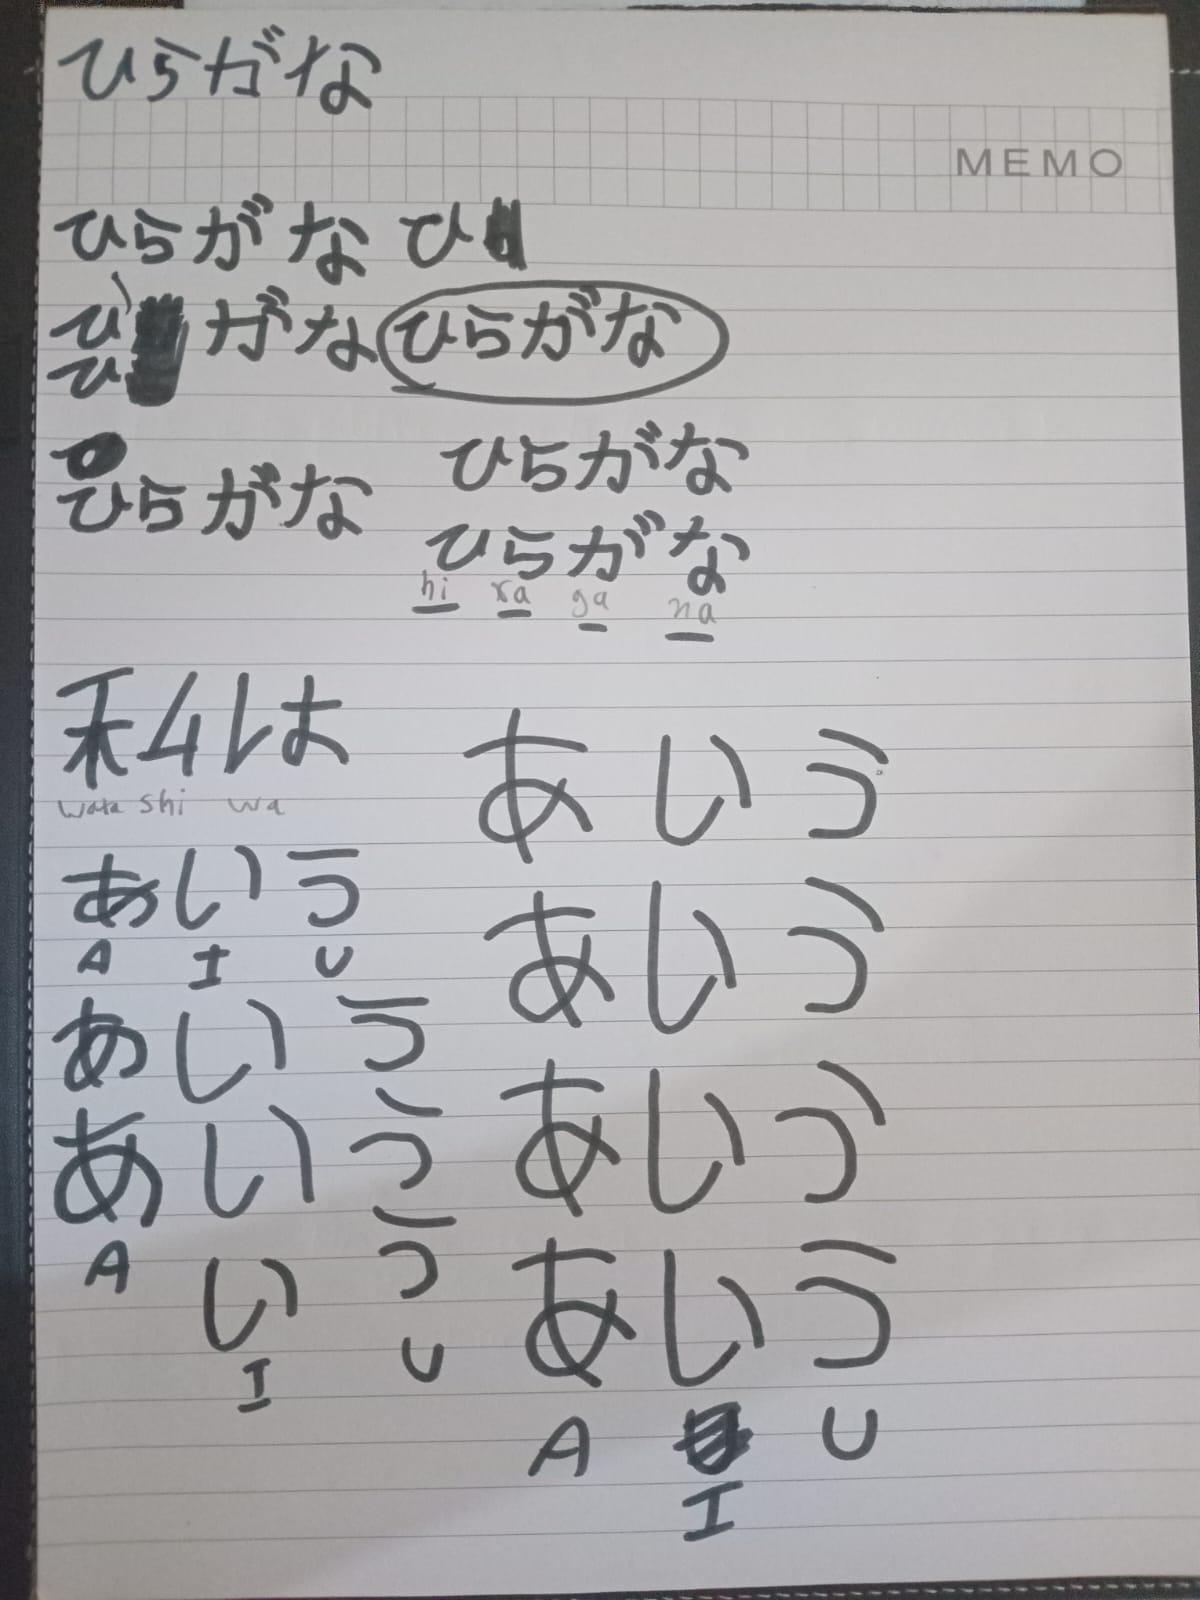 ひらがな
MEMO
ひらがな ひ
ひ がな ひらがな
ひ
ひらがな
ひらがな
ひらがな
hi ra ga na
私は
wata shi wa
あいう
A I U
あいう
あいう
う
A
い
U
I
あいう
あいう
あいう
あいう
A U
I